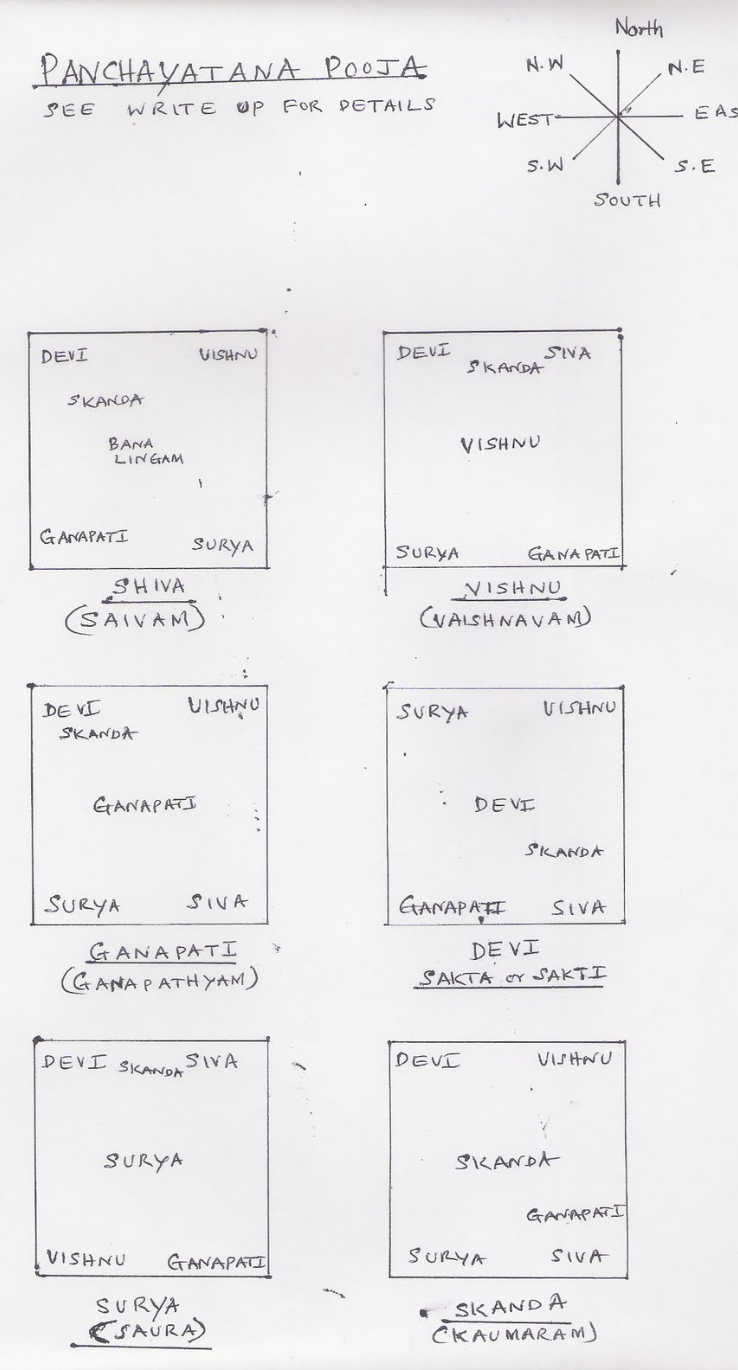 North
PANCHAYATANA POOJA
N.W
N.E
SEE WRITE UP FOR DETAILS
WEST
EAS
S.W
S.E
SOUTH
DEVI VISHNU
SKANDA
BANA
LINGAM
GANAPATI SURYA
SHIVA
(SAIVAM)
DEVI SKANDA SIVA
VISHNU
SURYA GANAPATI
VISHNU
(VAISHNAVAM)
DEVI VISHNU
SKANDA
GANAPATI
SURYA SIVA
GANAPATI
(GANAPATHYAM)
SURYA VISHNU
DEVI
SKANDA
GANAPATI SIVA
DEVI
SAKTA or SAKTI
DEVI SKANDA SIVA
SURYA
VISHNU GANAPATI
SURYA
(SAURA)
DEVI VISHNU
SKANDA
GANAPATI
SURYA SIVA
SKANDA
(KAUMARAM)